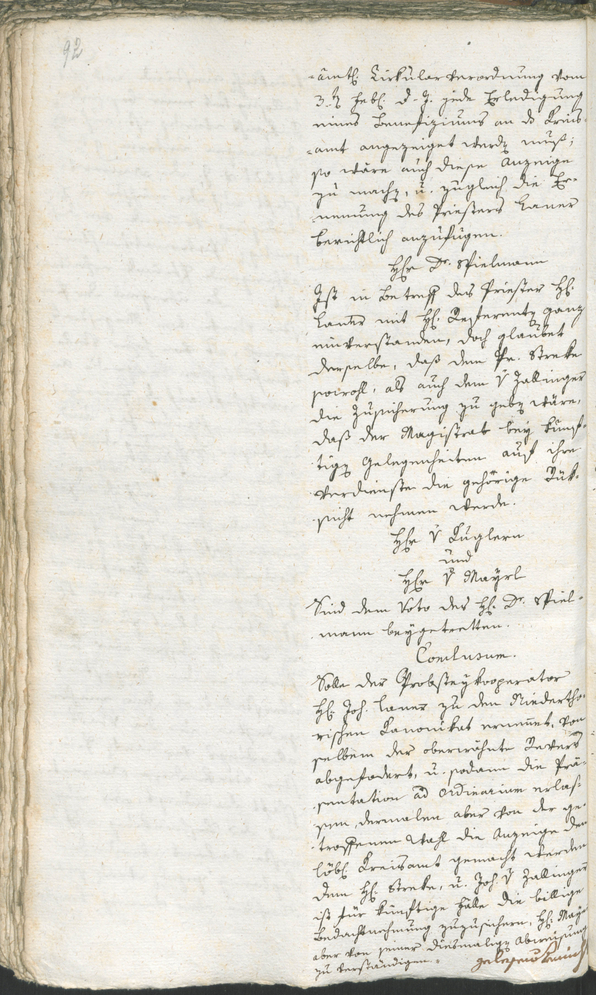 92
-ämtl. Cirkularverordnung vom
3. Febl. d. J. jede Erledigung
eines Benefiziums an ds Kreis-
-amt angezeiget werdn muß;
so wäre auch diese Anzeige
zu machn, u. zugleich die Er-
nennung des Priesters Laner
berichtlich anzufügen.
Hhr Dr. Spielmann
Ist in Betreff des Priester H.
Laner mit H. Referentn ganz
einverstanden, doch glaubet
derselbe, daß dem Pr. Streke
sowohl, als auch dem v Zallinger
die Zusicherung zu gebn wäre,
daß der Magistrat bey künf-
tign Gelegenheiten auf ihre
Verdienste die gehörige Rük-
sicht nehmen werde.
Hhr v Kuglern
und
Hhr v Mayrl
Sind dem Voto des H. Dr. Spiel-
mann beygetretten.
Conclusum.
Solle der Probsteykooperator
H. Joh. Laner zu dem Niedertho-
rischen Kanonikat ernennt, von
selbem der oberwähnte Revers
abgefodert, u. sodann die Prä-
sentation ad Ordinarium erlas-
sen, dermalen aber von der ge-
-troffenen Wahl die Anzeige dem
löbl. Kreisamt gemacht werden
dem H. Streke, u. Joh. v Zallinger
ist für künftige Fälle die billige
Bedachtnehmung zuzusichern, H. Mayr
aber von seiner diesmaligen Abweisung
zu verständigen.